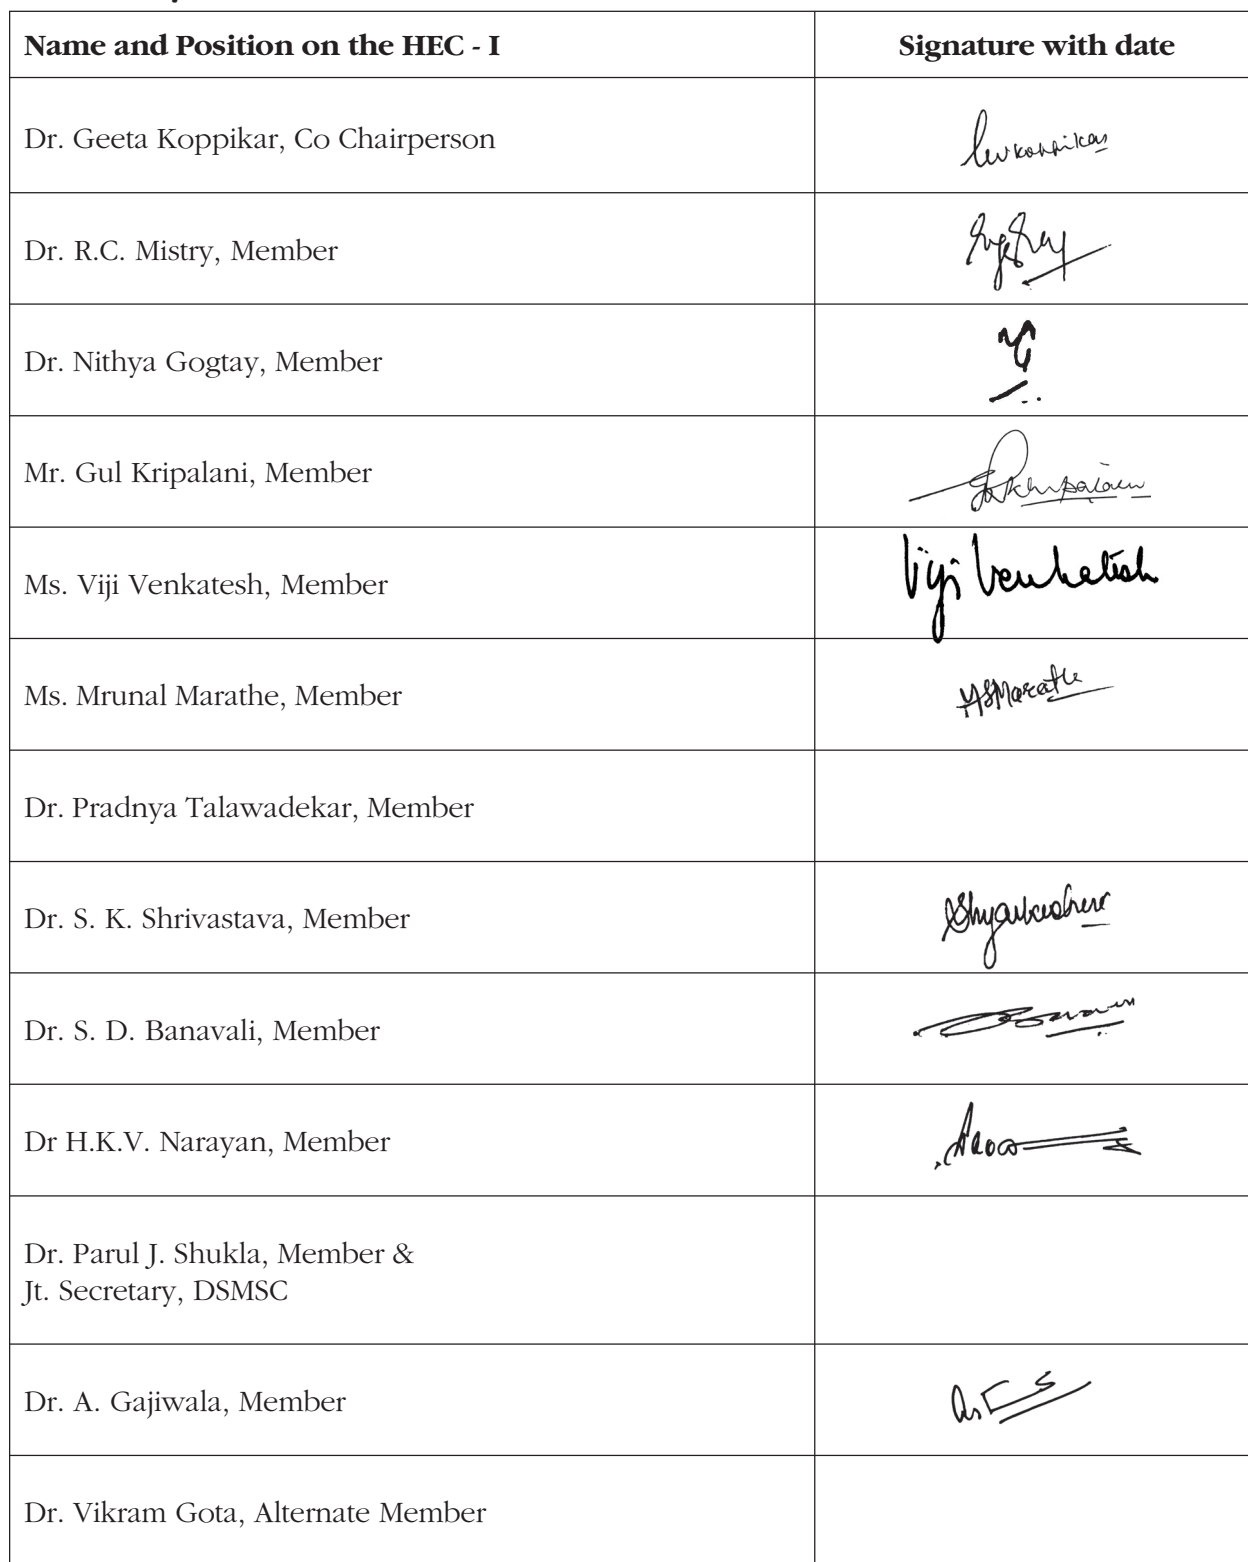 Name and Position on the HEC - I
Signature with date
Dr. Geeta Koppikar, Co Chairperson
Dr. R.C. Mistry, Member
Dr. Nithya Gogtay, Member
Mr. Gul Kripalani, Member
Ms. Viji Venkatesh, Member
Viji Venkatesh
Ms. Mrunal Marathe, Member
Dr. Pradnya Talawadekar, Member
Dr. S. K. Shrivastava, Member
Dr. S. D. Banavali, Member
Dr H.K.V. Narayan, Member
Dr. Parul J. Shukla, Member &
Jt. Secretary, DSMSC
Dr. A. Gajiwala, Member
Dr. Vikram Gota, Alternate Member